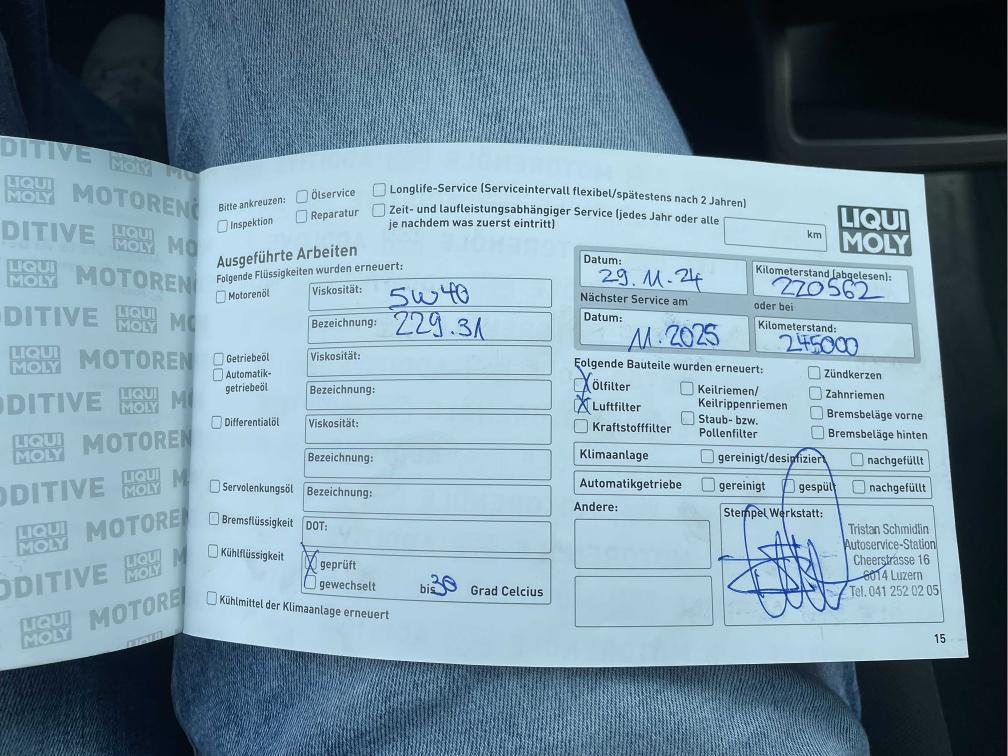 DITIVE LIQUI MOLY
LIQUI MOLY MOTORENÖ
DITIVE LIQUI MOLY MO
LIQUI MOLY MOTOREN
DDITIVE LIQUI MOLY M
LIQUI MOLY MOTOREN
DDITIVE LIQUI MOLY M
LIQUI MOLY MOTOREN
DDITIVE LIQUI MOLY
LIQUI MOLY MOTOREN
DDITIVE LIQUI MOLY
LIQUI MOLY MOTORE
Bitte ankreuzen: Ölservice Longlife-Service (Serviceintervall flexibel/spätestens nach 2 Jahren)
Inspektion Reparatur Zeit- und laufleistungsabhängiger Service (jedes Jahr oder alle km
je nachdem was zuerst eintritt)
LIQUI MOLY
Ausgeführte Arbeiten
Folgende Flüssigkeiten wurden erneuert:
Motorenöl Viskosität: 5W40
Bezeichnung: 229.31
Getriebeöl Viskosität:
Automatik-
getriebeöl
Bezeichnung:
Differentialöl Viskosität:
Bezeichnung:
Servolenkungsöl Bezeichnung:
Bremsflüssigkeit DOT:
Kühlflüssigkeit X geprüft
gewechselt bis 30 Grad Celcius
Kühlmittel der Klimaanlage erneuert
Datum: 29.11.24 Kilometerstand (abgelesen): 220562
Nächster Service am oder bei
Datum: 11.2025 Kilometerstand: 245000
Folgende Bauteile wurden erneuert: Zündkerzen
X Ölfilter Keilriemen/ Zahnriemen
Keilrippenriemen
X Luftfilter Bremsbeläge vorne
Kraftstofffilter Staub- bzw. Bremsbeläge hinten
Pollenfilter
Klimaanlage gereinigt/desinfiziert nachgefüllt
Automatikgetriebe gereinigt gespült nachgefüllt
Andere: Stempel Werkstatt:
Tristan Schmidlin
Autoservice-Station
Cheerstrasse 16
6014 Luzern
Tel. 041 252 02 05
15